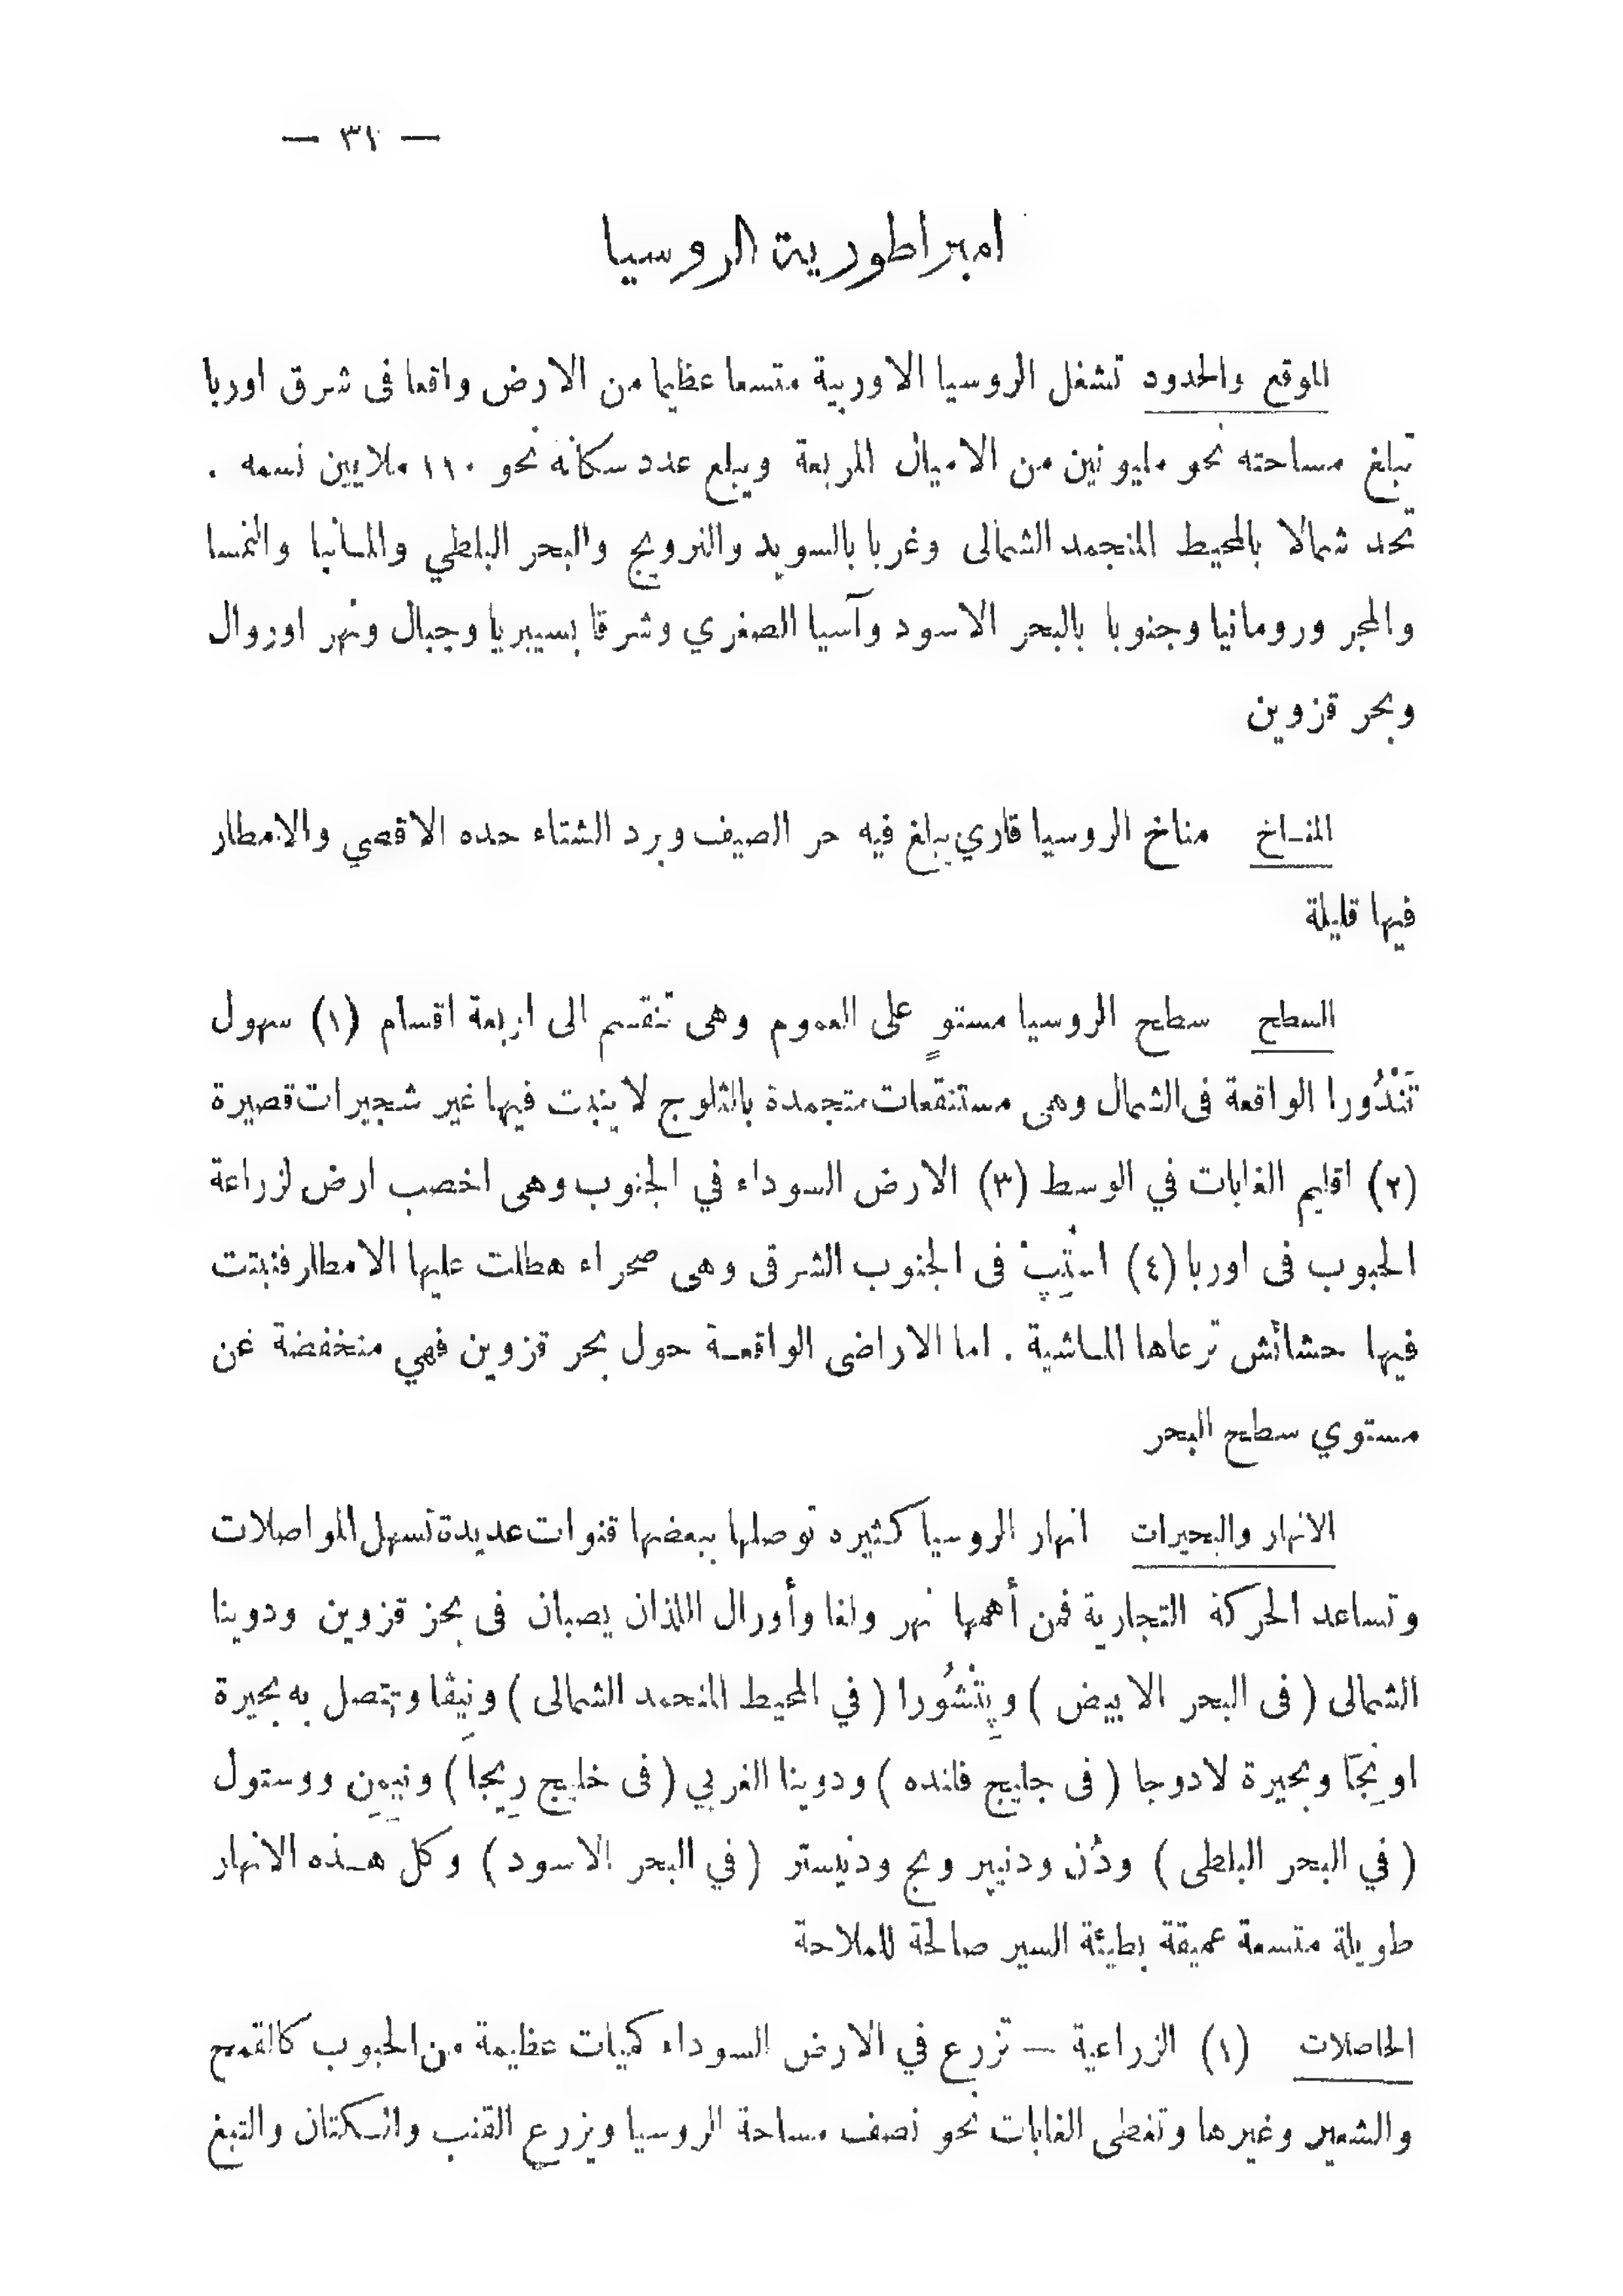 — ٣١ —
امبراطورية الروسيا
الموقع والحدود تشغل الروسيا الاوربية متسعا عظيما من الارض واقعا فى شرق اوربا
تبلغ مساحته نحو مليونين من الاميال المربعة ويبلغ عدد سكانه نحو ١١٠ ملايين نسمه .
تحد شمالا بالمحيط المنجمد الشمالى وغربا بالسويد والنرويج والبحر البلطي والمانيا والنمسا
والمجر ورومانيا وجنوبا بالبحر الاسود وآسيا الصغري وشرقا بسيبريا وجبال ونهر اوروال
وبحر قزوين
المناخ مناخ الروسيا قاري يبلغ فيه حر الصيف وبرد الشتاء حده الاقصي والامطار
فيها قليلة
السطح سطح الروسيا مستوٍ على العموم وهى تنقسم الى اربعة اقسام (١) سهول
تَنْدُورا الواقعة فى الشمال وهى مستنقعات متجمدة بالثلوج لا ينبت فيها غير شجيرات قصيرة
(٢) اقليم الغابات في الوسط (٣) الارض السوداء في الجنوب وهى اخصب ارض لزراعة
الحبوب فى اوربا (٤) استِپْ فى الجنوب الشرقى وهى صحراء هطلت عليها الامطار فنبتت
فيها حشائش ترعاها الماشية . اما الاراضى الواقعة حول بحر قزوين فهي منخفضة عن
مستوي سطح البحر
الانهار والبحيرات انهار الروسيا كثيره توصلها ببعضها قنوات عديدة تسهل المواصلات
وتساعد الحركة التجارية فمن أهمها نهر ولغا وأورال اللذان يصبان فى بحر قزوين ودوينا
الشمالى ( فى البحر الابيض ) وپِتْشُورا ( في المحيط المنجمد الشمالى ) ونِيڤا وتتصل به بحيرة
اونِجَا وبحيرة لادوجا ( فى خليج فانده ) ودوينا الغربي ( فى خليج رِيجا ) ونِيمِن ووستول
( في البحر البلطى ) ودُن ودنيپر وبج ودنيستر ( في البحر الاسود ) وكل هـذه الانهار
طويلة متسعة عميقة بطيئة السير صالحة للملاحة
الحاصلات (١) الزراعية — تزرع في الارض السوداء كميات عظيمة من الحبوب كالقمح
والشعير وغيرها وتغطى الغابات نحو نصف مساحة الروسيا ويزرع القنب والكتان والتبغ